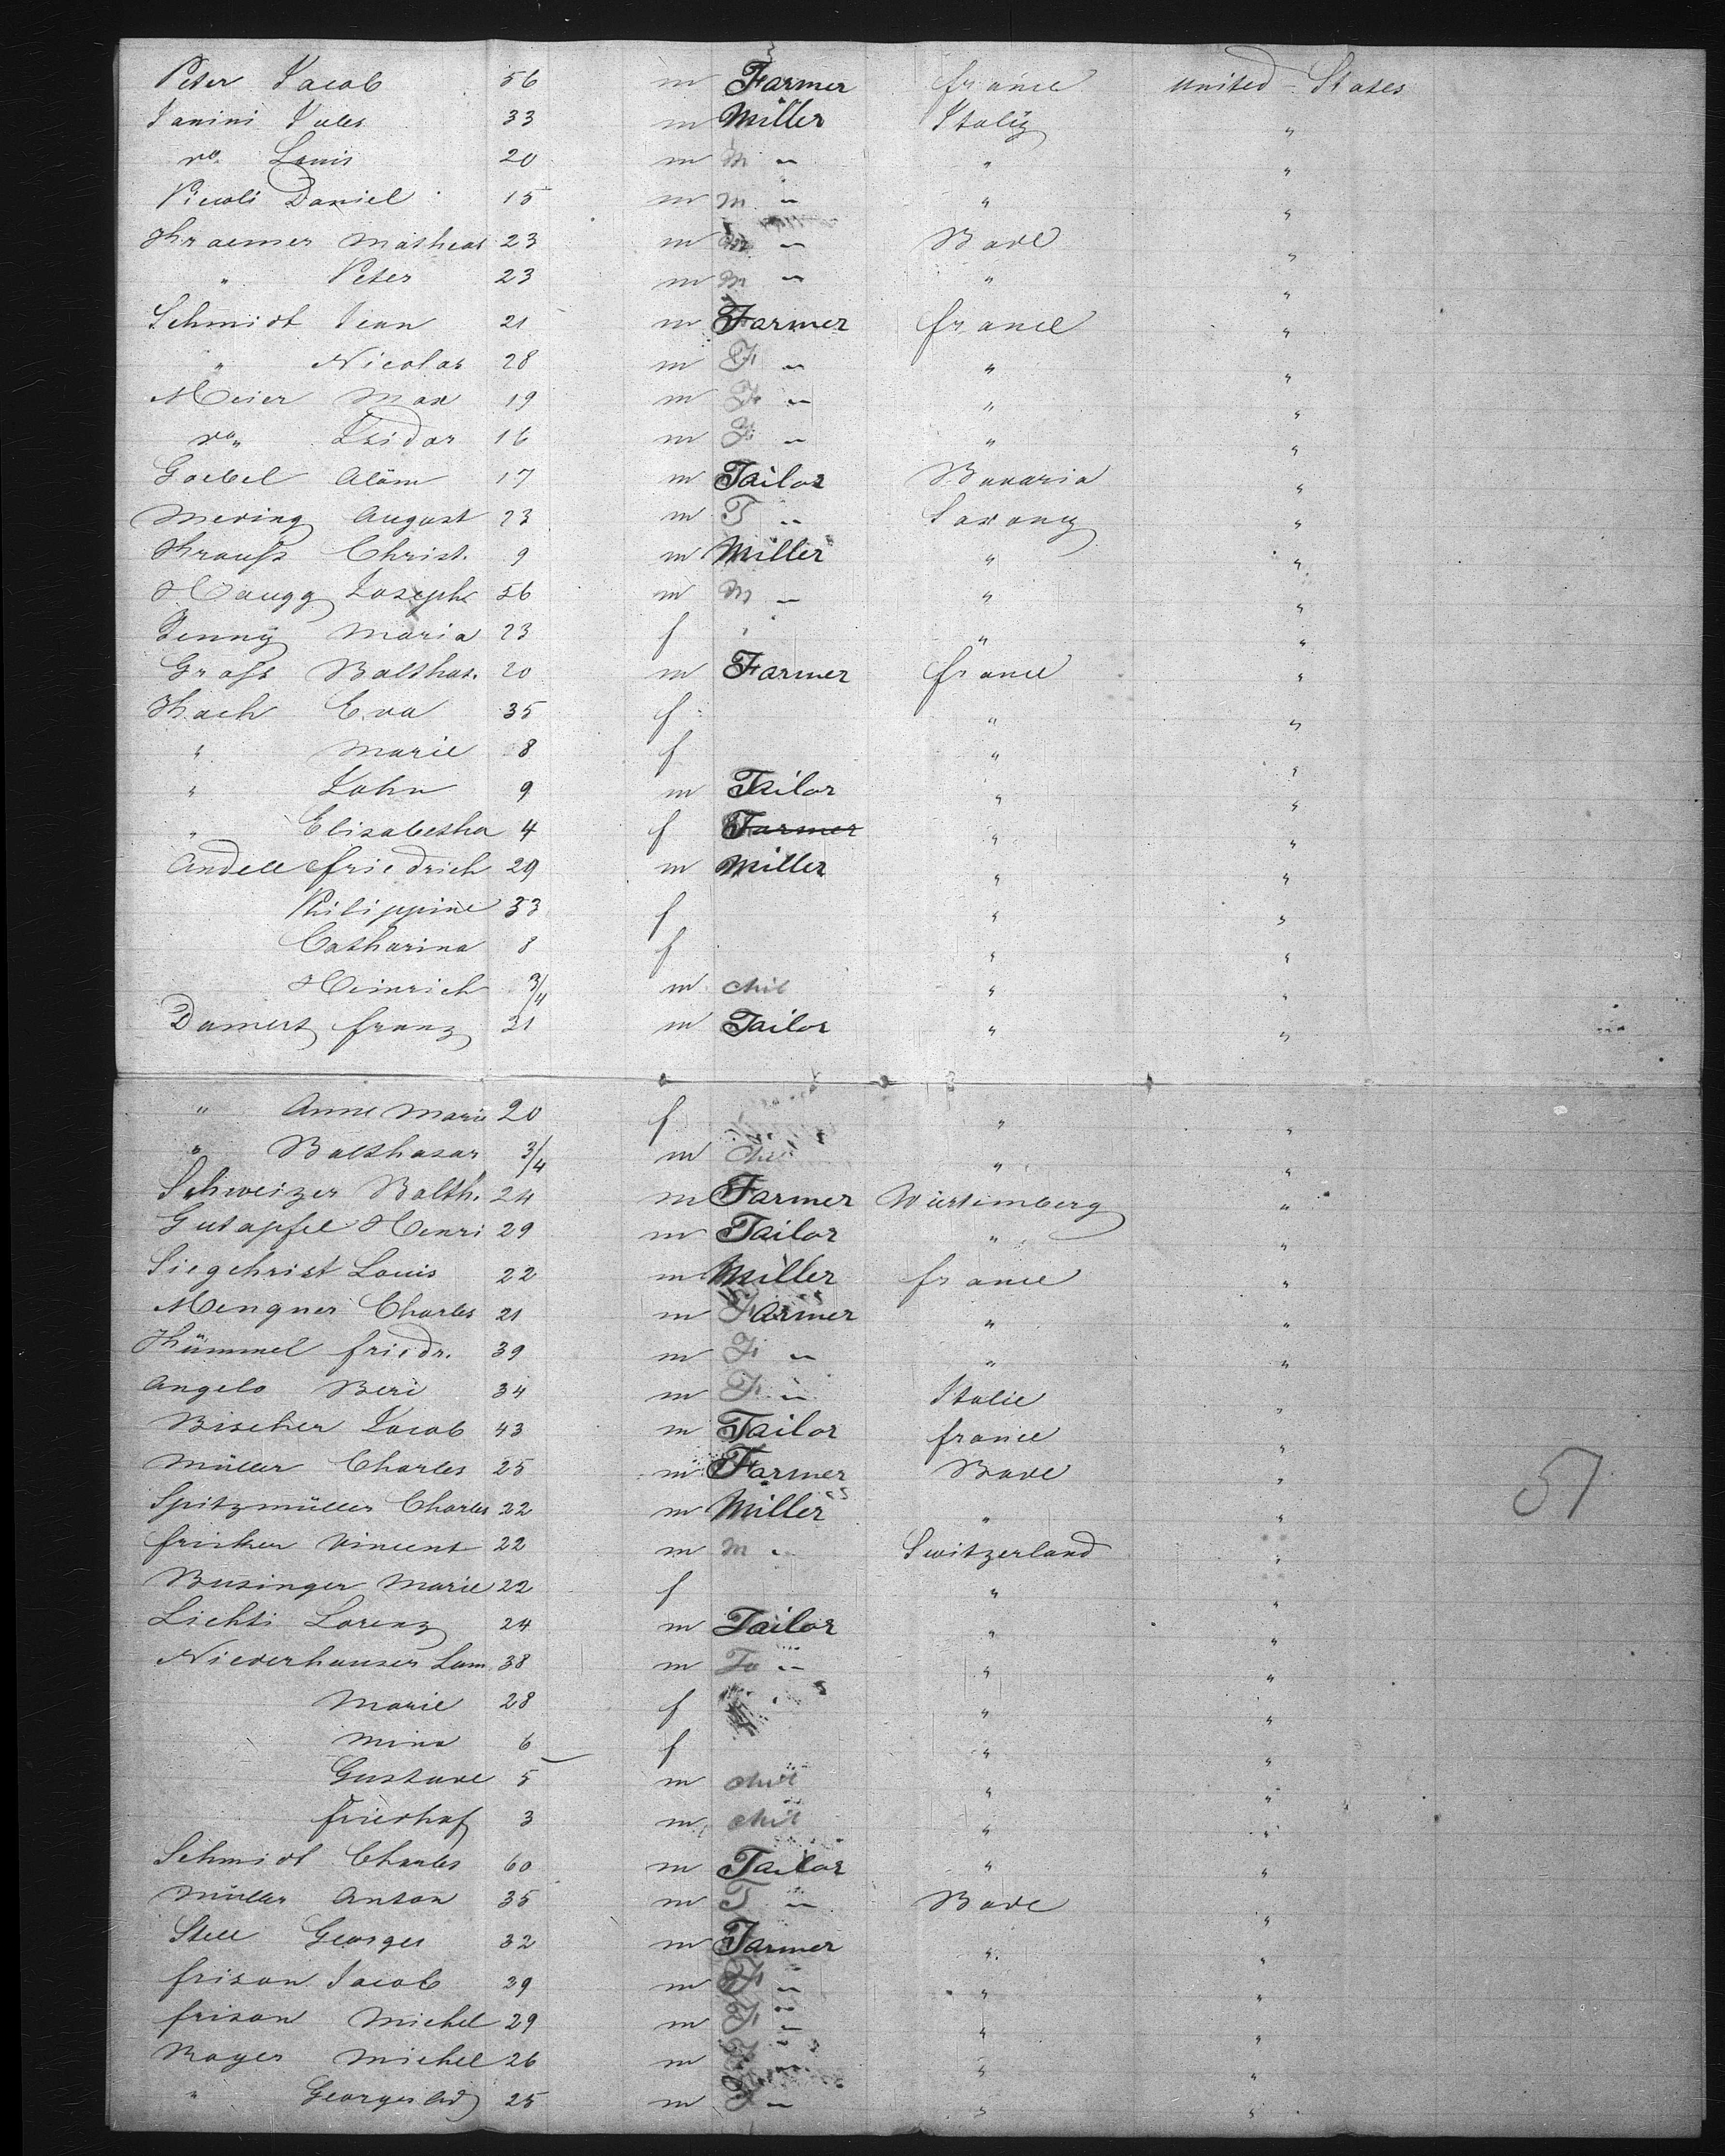 Peter Jacob 56 m Farmer france United States
Janini Jules 33 m Miller Italy "
do Louis 20 m M " " "
Picoli Daniel 15 m M " " "
Kraemer Matheas 23 m M " Bade "
" Peter 23 m M " " "
Schmidt Jean 21 m Farmer france "
" Nicolas 28 m F " " "
Meier Max 19 m F " " "
do " Isidor 16 m F " " "
Goebel Adam 17 m Tailor Bavaria "
Mering August 23 m T " Saxony "
Krauß Christ. 9 m Miller " "
Haugg Joseph 56 m M " " "
Jenny Maria 23 f " "
Groß Balthas. 20 m Farmer france "
Koch Eva 35 f " "
" Marie 8 f " "
" John 9 m Tailor " "
" Elisabetha 4 f Farmer " "
Andell friedrich 29 m Miller " "
Philippine 33 f " "
Catharina 8 f " "
Heinrich 3/4 m chil " "
Damert franz 31 m Tailor " "
" Anne Marie 20 f " "
" Balthasar 3/4 m chil " "
Schweizer Balth. 24 m Farmer Würtemberg "
Gutapfel Henri 29 m Tailor " "
Siegchrist Louis 22 m Miller france "
Mengner Charles 21 m Farmer " "
Kümmel friedr. 39 m F " " "
Angelo Beri 34 m F " Italie "
Bischer Jacob 43 m Tailor france "
Müller Charles 25 m Farmer Bade "
Spitzmüller Charles 22 m Miller " "
fricker Vincent 22 m M " Switzerland "
Businger Marie 22 f " "
Liechti Lorenz 24 m Tailor " "
Niederhauser Sam. 38 m Ta " " "
Marie 28 f " "
Mina 6 f " "
Gustave 5 m chil " "
friedhof 3 m chil " "
Schmidt Charles 60 m Tailor " "
Müller Anton 35 m T " Bade "
Stell Georges 32 m Farmer " "
frison Jacob 39 m F " " "
frison Michel 29 m F " " "
Royer Michel 26 m F " " "
" Georges 25 m F " " "
51